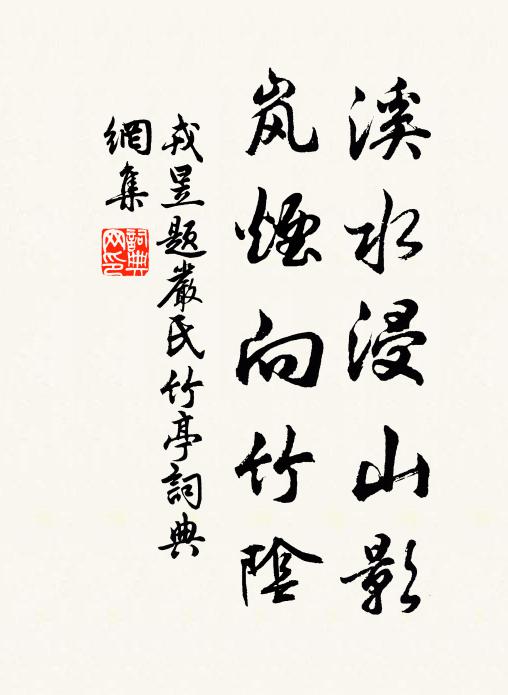 溪水浸山影
岚烟向竹阴
戎昱题嚴氏竹亭詞典
網集
詞典网印